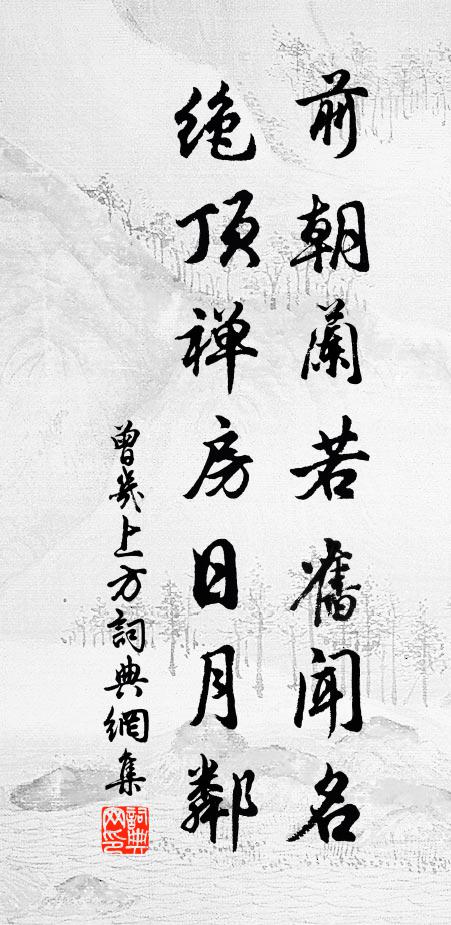 前朝蘭若舊聞名
絶頂禅房日月鄰
曾幾上方詞典網集
詞典網印